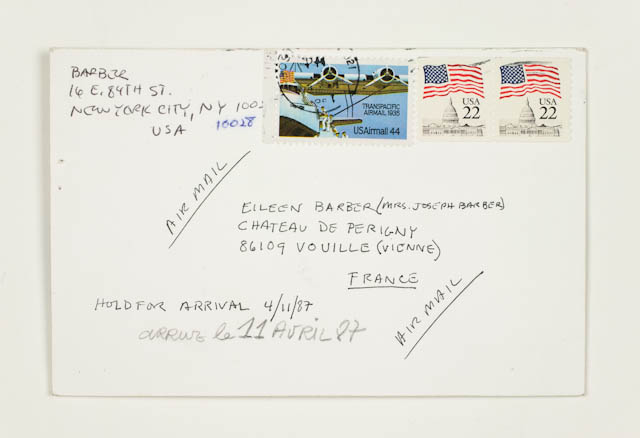 BARBER
16 E. 84TH ST.
NEW YORK CITY, NY
USA 10028
TRANSPACIFIC
AIRMAIL 1935
USAirmail 44
USA
22
USA
22
AIR MAIL
EILEEN BARBER (MRS. JOSEPH BARBER)
CHATEAU DE PERIGNY
86109 VOUILLE (VIENNE)
FRANCE
HOLD FOR ARRIVAL 4/11/87
AIR MAIL
le 11 AVRIL 87